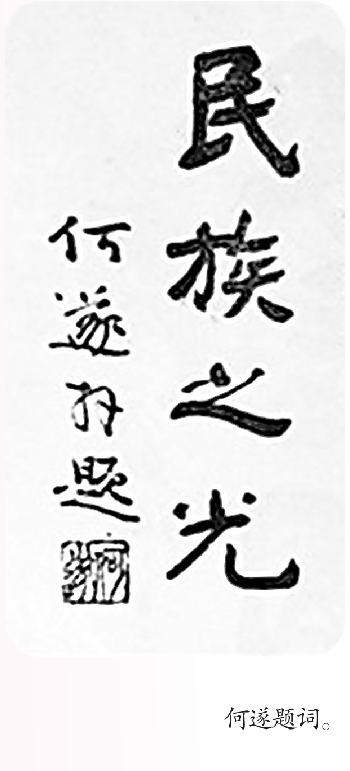 民族之光
何遂拜题
何遂题词。